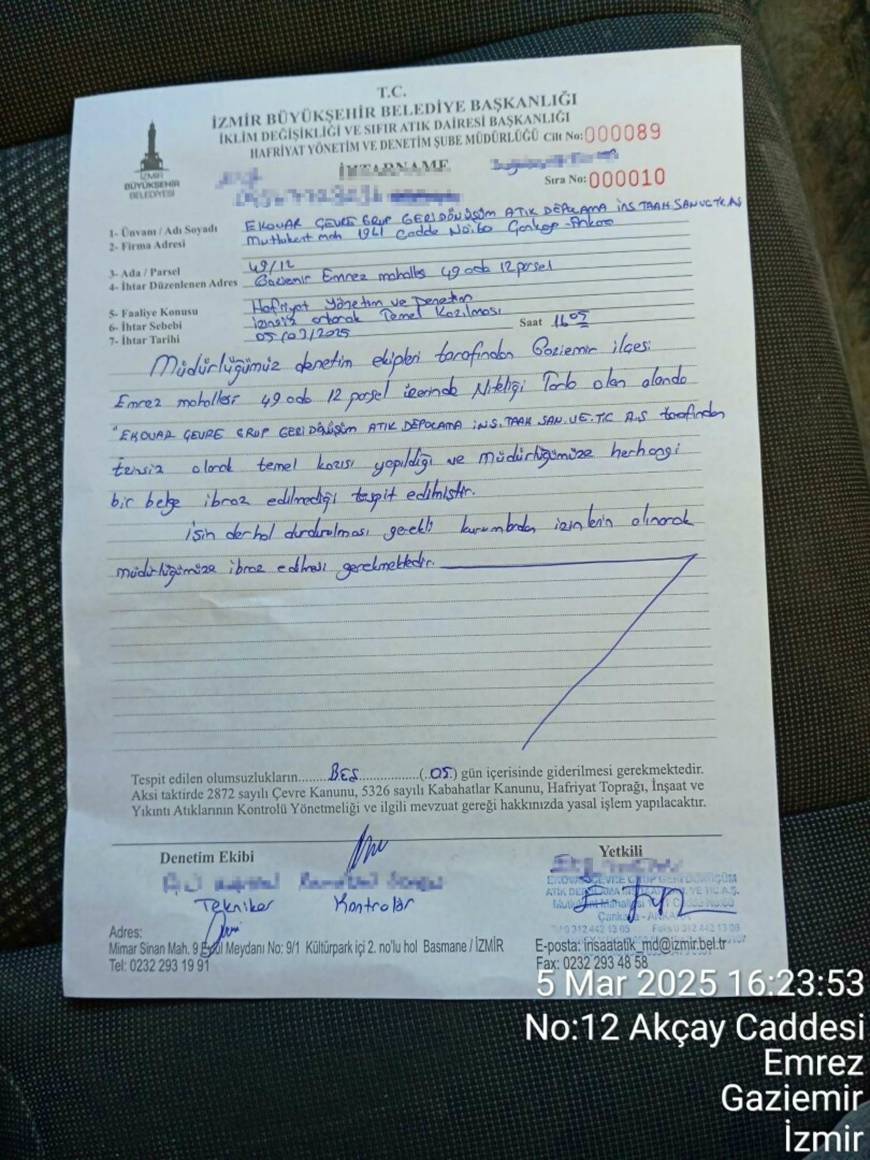 T.C.
İZMİR BÜYÜKŞEHİR BELEDİYE BAŞKANLIĞI
İKLİM DEĞİŞİKLİĞİ VE SIFIR ATIK DAİRESİ BAŞKANLIĞI
HAFRİYAT YÖNETİM VE DENETİM ŞUBE MÜDÜRLÜĞÜ Cilt No:000089
İHTARNAME
Sıra No:000010
İZMİR
BÜYÜKŞEHİR
BELEDİYESİ
1- Ünvanı / Adı Soyadı EKOVAR ÇEVRE GRUP GERİ DÖNÜŞÜM ATIK DEPOLAMA İNŞ TAAH SAN VE TİC AŞ
2- Firma Adresi Mutlukent mah 1941 Cadde No:60 Çankaya-Ankara
3- Ada / Parsel 49/12
4- İhtar Düzenlenen Adres Gaziemir Emrez mahalles 49 ada 12 parsel
5- Faaliye Konusu Hafriyat Yönetim ve Denetim
6- İhtar Sebebi İzinsiz olarak Temel Kazılması
7- İhtar Tarihi 05/03/2025 Saat 16:05
Müdürlüğümüz denetim ekipleri tarafından Gaziemir ilçesi
Emrez mahallesi 49 ada 12 parsel üzerinde Niteliği Tarla olan alanda
"EKOVAR ÇEVRE GRUP GERİ DÖNÜŞÜM ATIK DEPOLAMA İNŞ. TAAH. SAN. VE. TİC A.Ş tarafından
olarak temel kazısı yapıldığı ve müdürlüğümüze herhangi
bir belge ibraz edilmediği tespit edilmiştir.
İşin derhal durdurulması gerekli kurumlardan izinlerin alınarak
müdürlüğümüze ibraz edilmesi gerekmektedir.
Tespit edilen olumsuzlukların.......BEŞ...............(.05.) gün içerisinde giderilmesi gerekmektedir.
Aksi taktirde 2872 sayılı Çevre Kanunu, 5326 sayılı Kabahatlar Kanunu, Hafriyat Toprağı, İnşaat ve
Yıkıntı Atıklarının Kontrolü Yönetmeliği ve ilgili mevzuat gereği hakkınızda yasal işlem yapılacaktır.
Denetim Ekibi Yetkili
Tekniker Kontrolör
Adres:
Mimar Sinan Mah. 9 Eylül Meydanı No: 9/1 Kültürpark içi 2. no'lu hol Basmane / İZMİR
Tel: 0232 293 19 91
E-posta: insaatatik_md@izmir.bel.tr
Fax: 0232 293 48 58
5 Mar 2025 16:23:53
No:12 Akçay Caddesi
Emrez
Gaziemir
İzmir